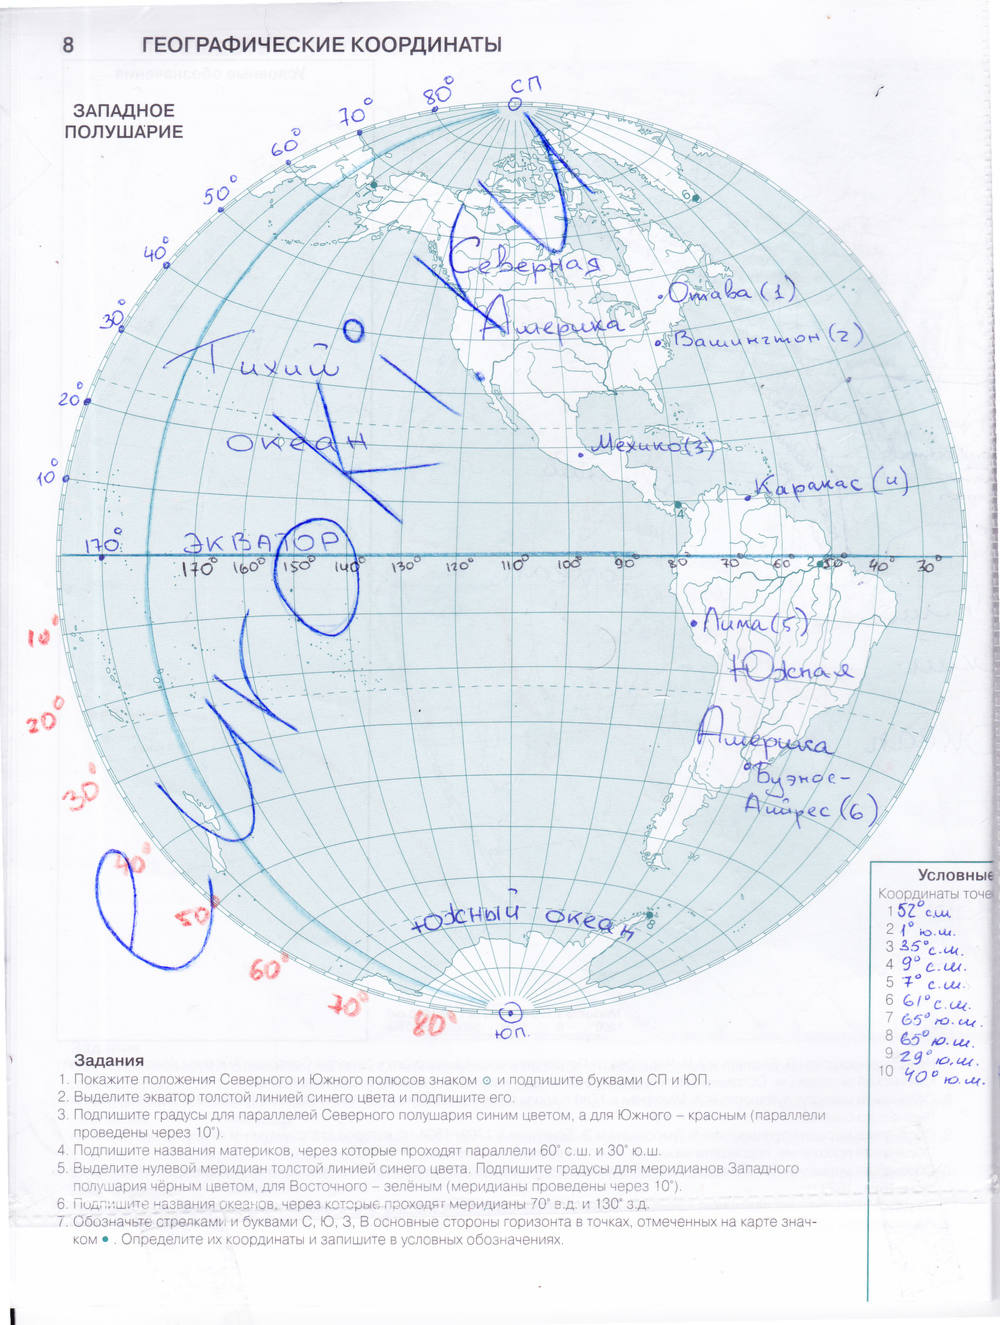 8 ГЕОГРАФИЧЕСКИЕ КООРДИНАТЫ
ЗАПАДНОЕ
ПОЛУШАРИЕ
СП
80°
70°
60°
50°
40°
30°
20°
10°
6
Северная
Америка
Отава (1)
Вашингтон (2)
Тихий
океан
Мехико (3)
Каракас (4)
4
ЭКВАТОР
170°
170° 160° 150° 140° 130° 120° 110° 100° 90° 80° 70° 60° 50° 40° 30°
2
10°
20°
30°
40°
50°
60°
70°
80°
Лима (5)
Южная
Америка
Буэнос-
Айрес (6)
Южный океан
8
ЮП.
Условные
Координаты точе
1 52° с.ш.
2 1° ю.ш.
3 35° с.ш.
4 9° с.ш.
5 7° с.ш.
6 61° с.ш.
7 65° ю.ш.
8 65° ю.ш.
9 29° ю.ш.
10 40° ю.ш.
Задания
1. Покажите положения Северного и Южного полюсов знаком ⊙ и подпишите буквами СП и ЮП.
2. Выделите экватор толстой линией синего цвета и подпишите его.
3. Подпишите градусы для параллелей Северного полушария синим цветом, а для Южного – красным (параллели
проведены через 10°).
4. Подпишите названия материков, через которые проходят параллели 60° с.ш. и 30° ю.ш.
5. Выделите нулевой меридиан толстой линией синего цвета. Подпишите градусы для меридианов Западного
полушария чёрным цветом, для Восточного – зелёным (меридианы проведены через 10°).
6. Подпишите названия океанов, через которые проходят меридианы 70° в.д. и 130° з.д.
7. Обозначьте стрелками и буквами С, Ю, З, В основные стороны горизонта в точках, отмеченных на карте знач-
ком ● . Определите их координаты и запишите в условных обозначениях.